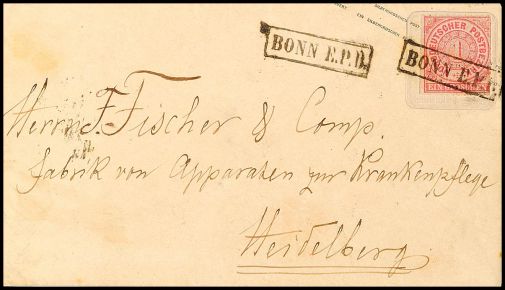 BONN E.P.D.
NORDDEUTSCHER POSTBEZIRK
1
EIN GROSCHEN
BONN E.P.
Herrn F. Fischer & Comp.
Fabrik von Apparaten zur Krankenpflege
Heidelberg